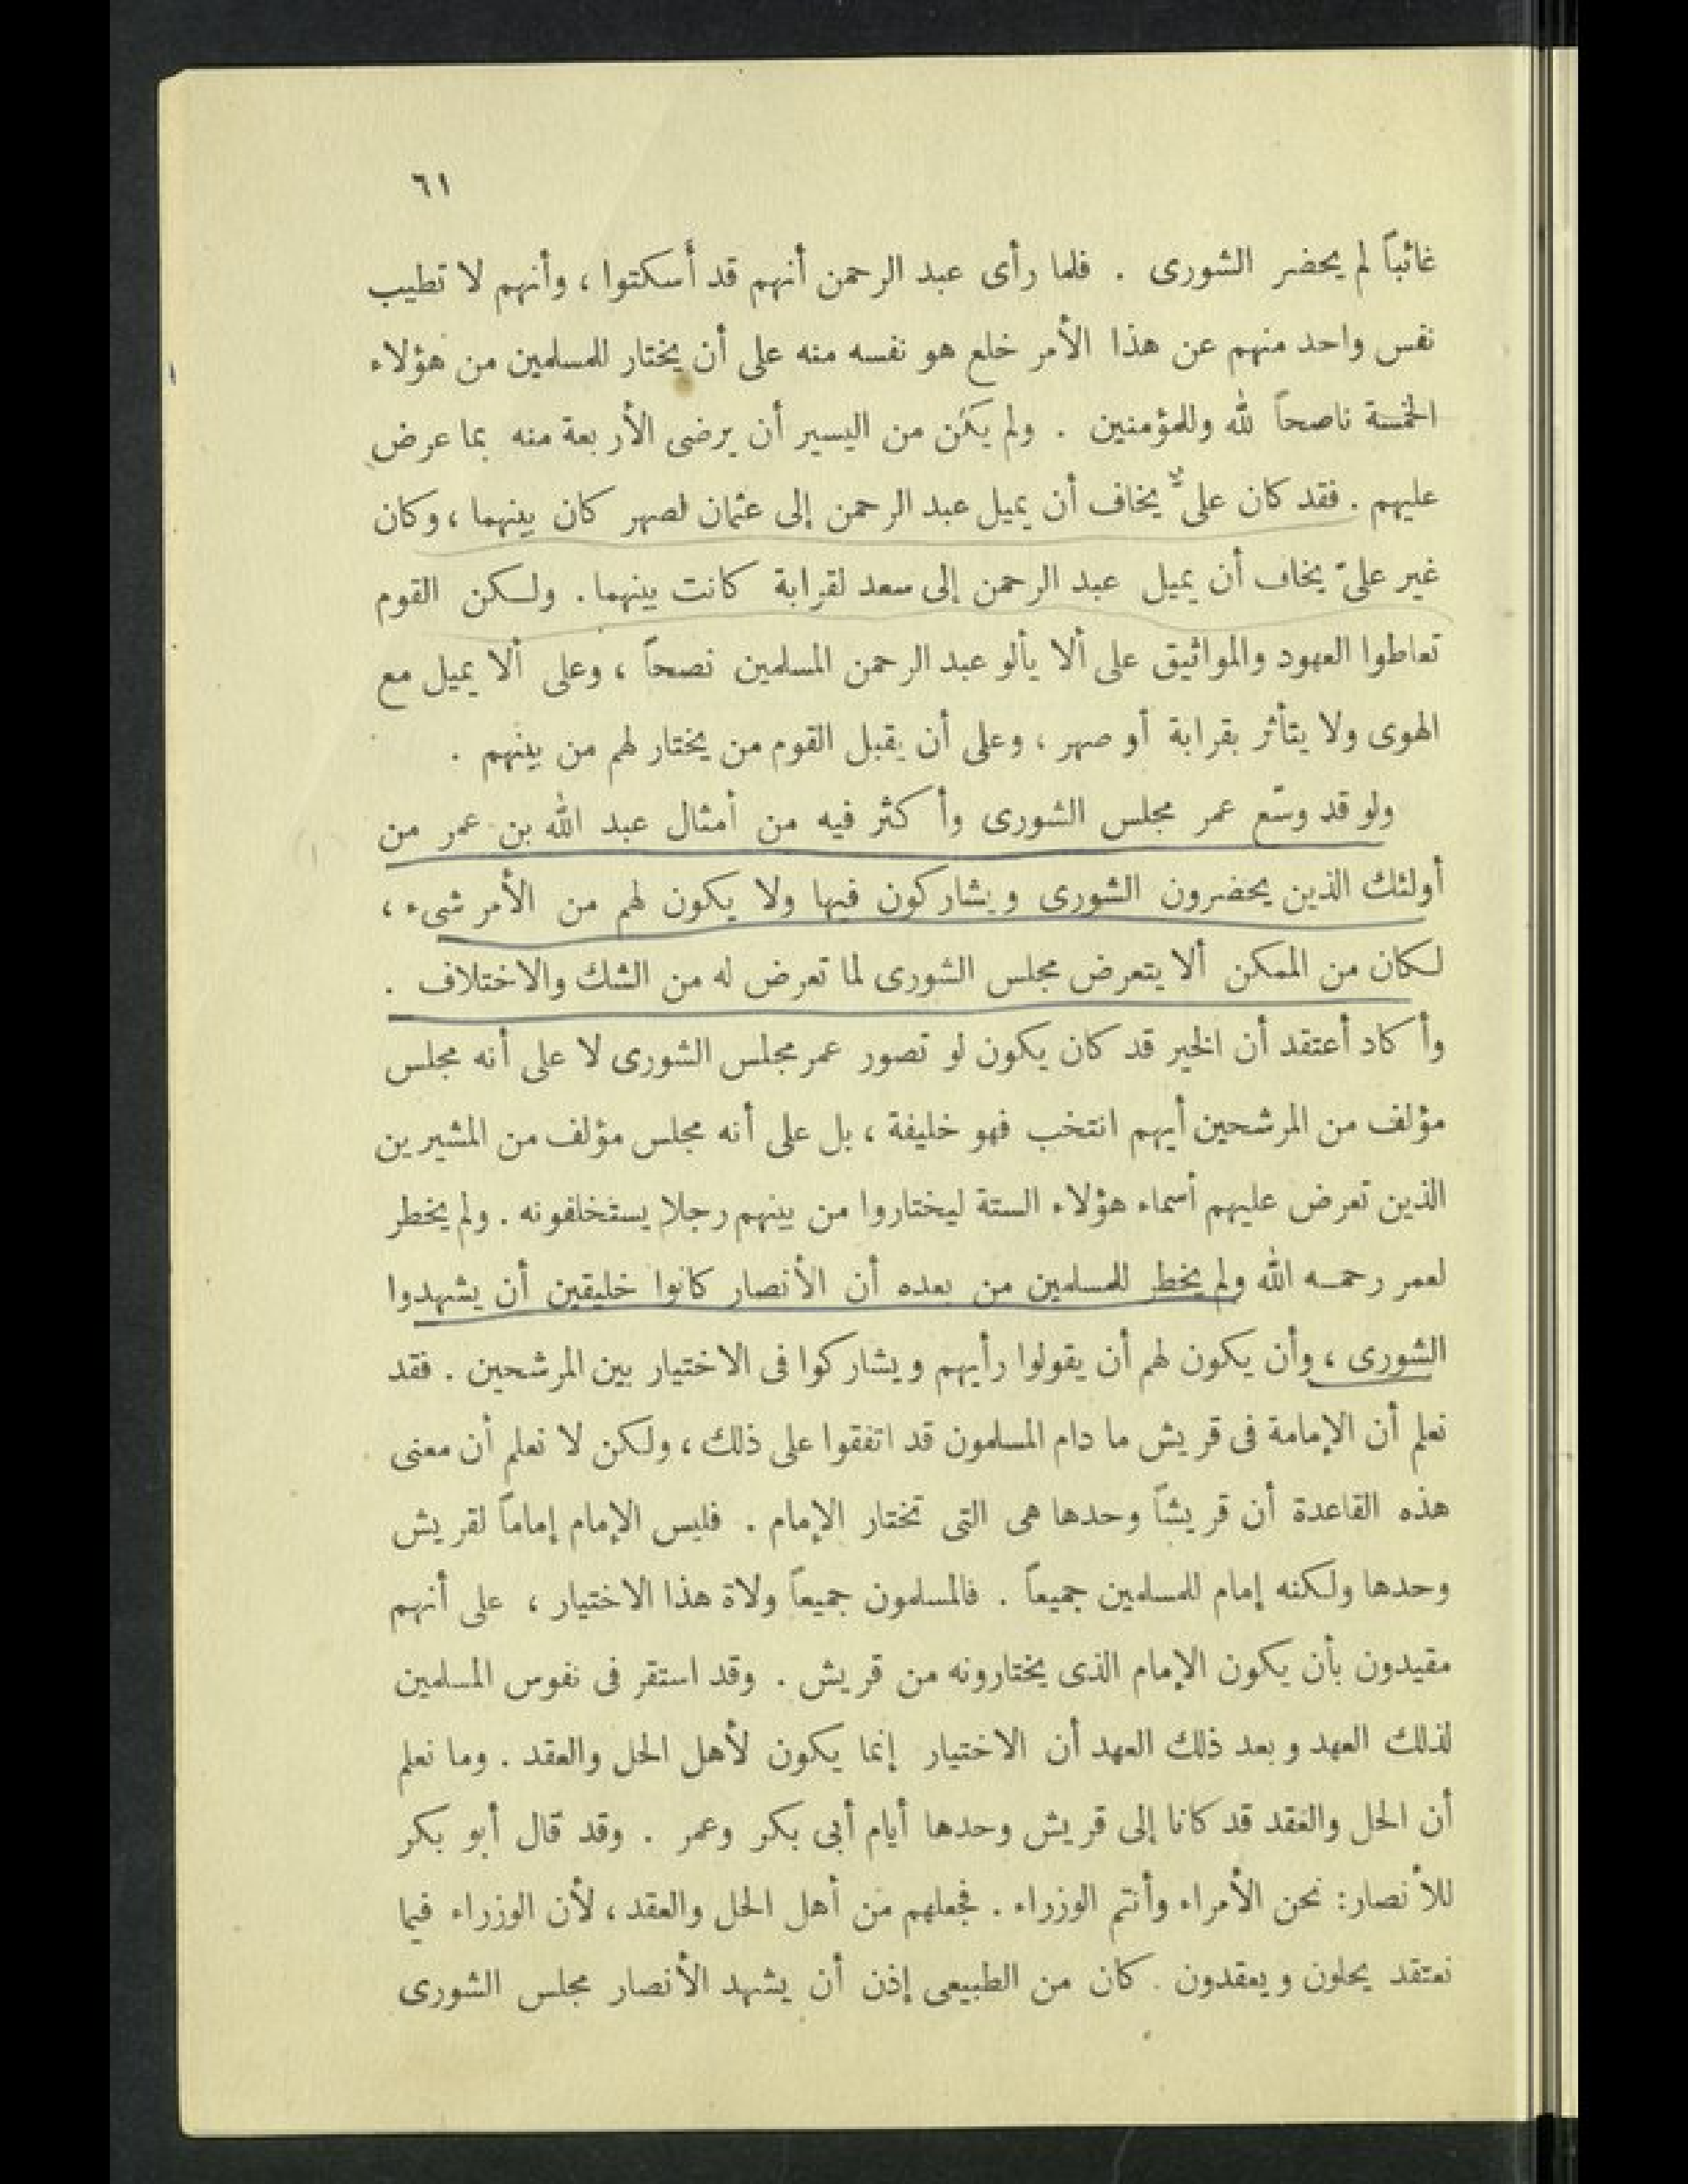 ٦١
غائباً لم يحضر الشورى . فلما رأى عبد الرحمن أنهم قد أسكتوا ، وأنهم لا تطيب
نفس واحد منهم عن هذا الأمر خلع هو نفسه منه على أن يختار للمسلمين من هؤلاء
الخمسة ناصحاً لله وللمؤمنين . ولم يكن من اليسير أن يرضى الأربعة منه بما عرض
عليهم . فقد كان علىٌّ يخاف أن يميل عبد الرحمن إلى عثمان لصهر كان بينهما ، وكان
غير علىّ يخاف أن يميل عبد الرحمن إلى سعد لقرابة كانت بينهما. ولكن القوم
تعاطوا العهود والمواثيق على ألا يألو عبد الرحمن المسلمين نصحاً ، وعلى ألا يميل مع
الهوى ولا يتأثر بقرابة أو صهر ، وعلى أن يقبل القوم من يختار لهم من بينهم .
ولو قد وسّع عمر مجلس الشورى وأكثر فيه من أمثال عبد الله بن عمر من
أولئك الذين يحضرون الشورى ويشاركون فيها ولا يكون لهم من الأمر شىء ،
لكان من الممكن ألا يتعرض مجلس الشورى لما تعرض له من الشك والاختلاف .
وأكاد أعتقد أن الخير قد كان يكون لو تصور عمر مجلس الشورى لا على أنه مجلس
مؤلف من المرشحين أيهم انتخب فهو خليفة ، بل على أنه مجلس مؤلف من المشيرين
الذين تعرض عليهم أسماء هؤلاء الستة ليختاروا من بينهم رجلا يستخلفونه . ولم يخطر
لعمر رحمه الله ولم يخطر للمسلمين من بعده أن الأنصار كانوا خليقين أن يشهدوا
الشورى ، وأن يكون لهم أن يقولوا رأيهم ويشاركوا فى الاختيار بين المرشحين . فقد
نعلم أن الإمامة فى قريش ما دام المسلمون قد اتفقوا على ذلك ، ولكن لا نعلم أن معنى
هذه القاعدة أن قريشاً وحدها هى التى تختار الإمام . فليس الإمام إماماً لقريش
وحدها ولكنه إمام للمسلمين جميعاً . فالمسلمون جميعاً ولاة هذا الاختيار ، على أنهم
مقيدون بأن يكون الإمام الذى يختارونه من قريش . وقد استقر فى نفوس المسلمين
لذلك العهد وبعد ذلك العهد أن الاختيار إنما يكون لأهل الحل والعقد . وما نعلم
أن الحل والعقد قد كانا إلى قريش وحدها أيام أبى بكر وعمر . وقد قال أبو بكر
للأنصار: نحن الأمراء وأنتم الوزراء . فجعلهم من أهل الحل والعقد ، لأن الوزراء فيما
نعتقد يحلون ويعقدون . كان من الطبيعى إذن أن يشهد الأنصار مجلس الشورى